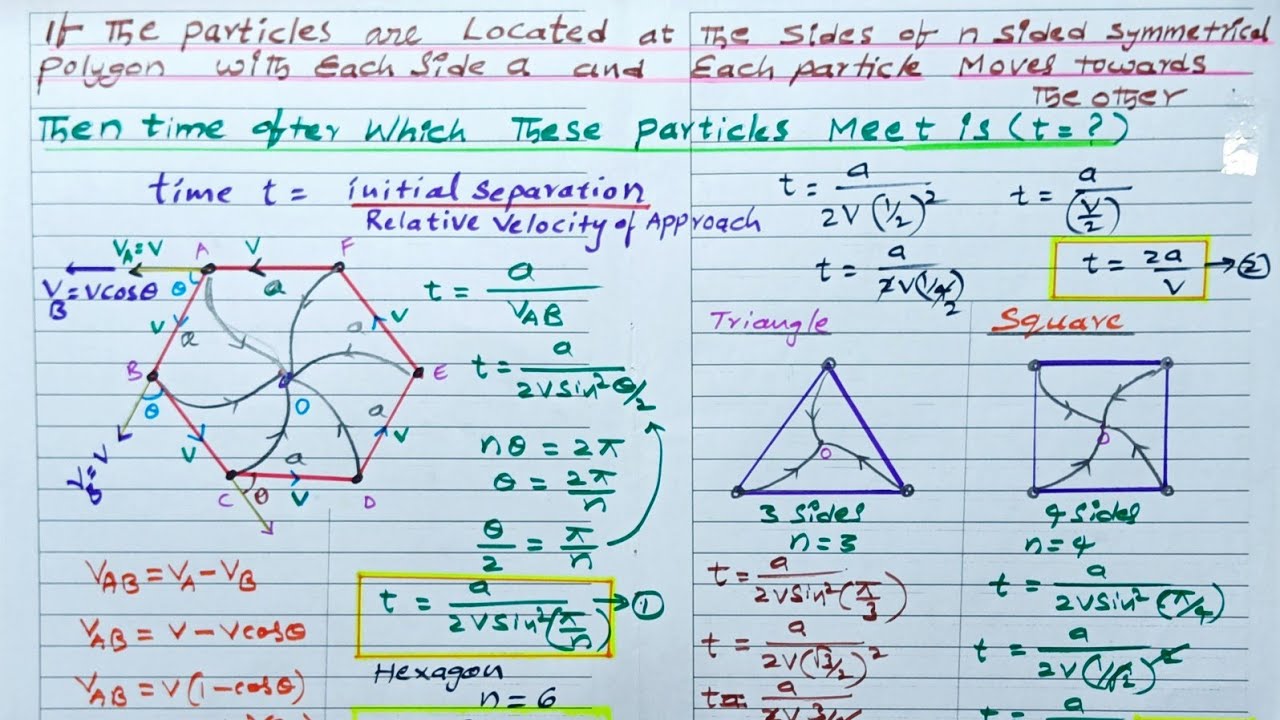 If The particles are Located at The sides of n sided symmetrical
polygon with Each side a and Each particle Moves towards
The other
Then time after Which These particles Meet is (t = ?)
time t = initial separation
Relative velocity of Approach
V_A = V
A
V
F
V_B = Vcosθ
θ
a
V
a
a
V
B
θ
O
E
V
a
V
V_B = V
a
C
θ
V
D
t = a / V_AB
t = a / 2V sin² θ/2
nθ = 2π
θ = 2π / n
θ/2 = π/n
V_AB = V_A - V_B
V_AB = V - Vcosθ
V_AB = V(1 - cosθ)
t = a / 2V sin²(π/n) → ①
Hexagon
n = 6
t = a / 2V(1/2)²
t = a / (V/2)
t = a / 2V(1/4)
2
t = 2a / V → ②
Triangle
O
3 sides
n = 3
t = a / 2V sin²(π/3)
t = a / 2V(√3/2)²
Square
O
4 sides
n = 4
t = a / 2V sin²(π/4)
t = a / 2V(1/√2)²